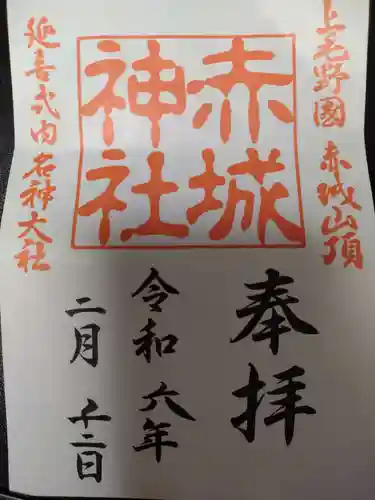 上毛野國 赤城山頂
赤城
神社
延喜式内名神大社
奉拝
令和六年
二月十二日